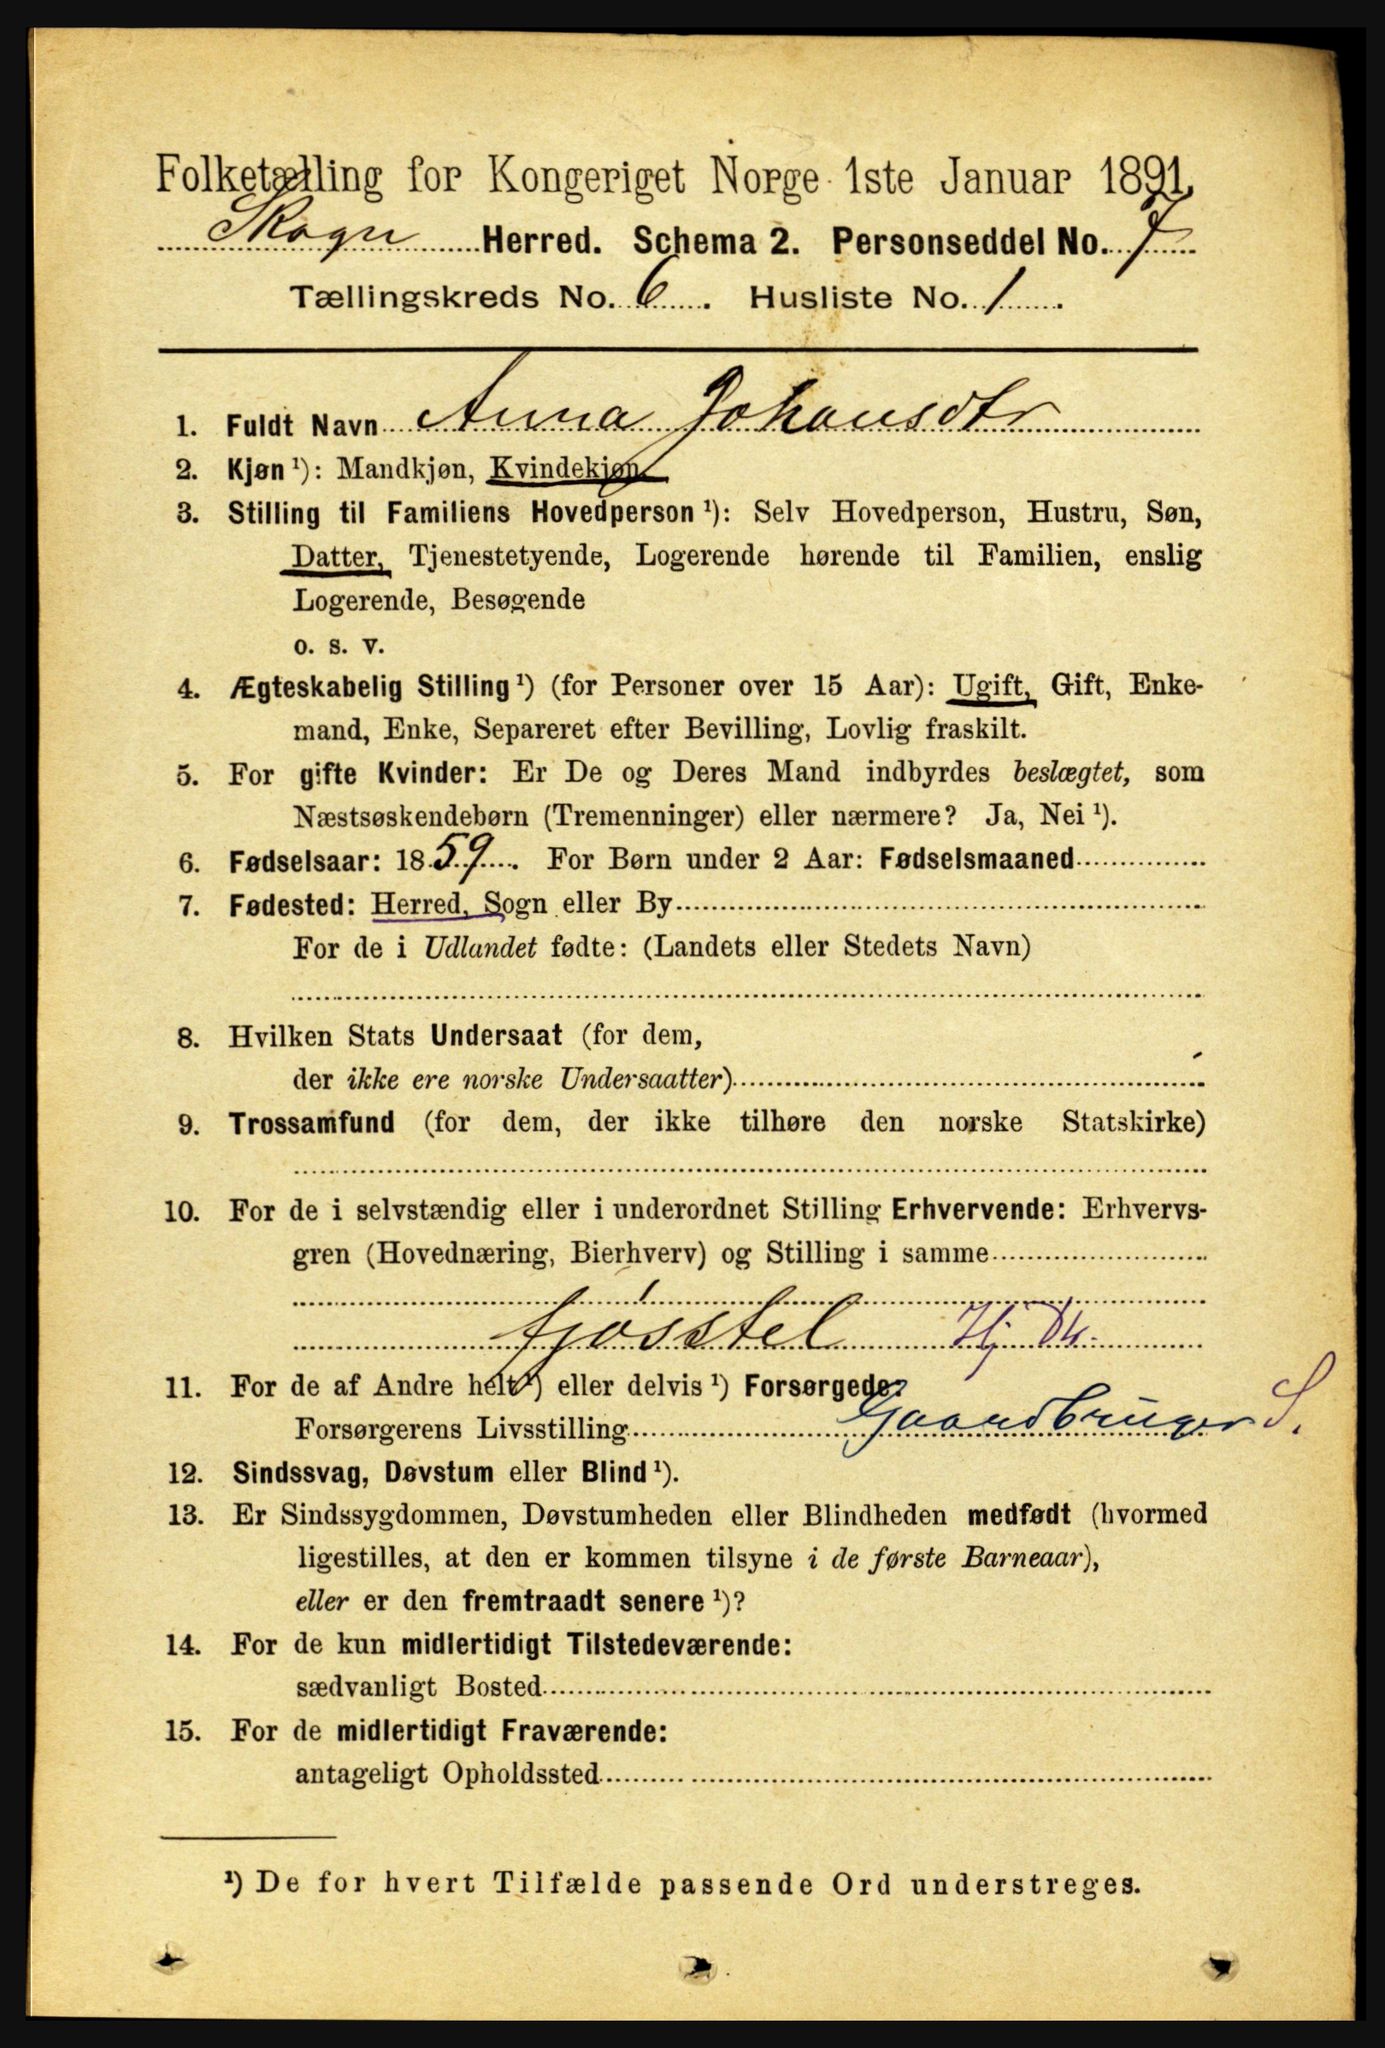 Folketælling for Kongeriget Norge 1ste Januar 1891.
Skogn Herred. Schema 2. Personseddel No. 7
Tællingskreds No. 6. Husliste No. 1.
1. Fuldt Navn Anna Johansdtr
2. Kjøn ¹): Mandkjøn, Kvindekjøn.
3. Stilling til Familiens Hovedperson ¹): Selv Hovedperson, Hustru, Søn,
Datter, Tjenestetyende, Logerende hørende til Familien, enslig
Logerende, Besøgende
o. s. v.
4. Ægteskabelig Stilling ¹) (for Personer over 15 Aar): Ugift, Gift, Enke-
mand, Enke, Separeret efter Bevilling, Lovlig fraskilt.
5. For gifte Kvinder: Er De og Deres Mand indbyrdes beslægtet, som
Næstsøskendebørn (Tremenninger) eller nærmere? Ja, Nei ¹).
6. Fødselsaar: 1859. For Børn under 2 Aar: Fødselsmaaned
7. Fødested: Herred, Sogn eller By
For de i Udlandet fødte: (Landets eller Stedets Navn)
8. Hvilken Stats Undersaat (for dem,
der ikke ere norske Undersaatter)
9. Trossamfund (for dem, der ikke tilhøre den norske Statskirke)
10. For de i selvstændig eller i underordnet Stilling Erhvervende: Erhvervs-
gren (Hovednæring, Bierhverv) og Stilling i samme
fjøsstel
11. For de af Andre helt ¹) eller delvis ¹) Forsørgede:
Forsørgerens Livsstilling Gaardbruger S.
12. Sindssvag, Døvstum eller Blind ¹).
13. Er Sindssygdommen, Døvstumheden eller Blindheden medfødt (hvormed
ligestilles, at den er kommen tilsyne i de første Barneaar),
eller er den fremtraadt senere ¹)?
14. For de kun midlertidigt Tilstedeværende:
sædvanligt Bosted
15. For de midlertidigt Fraværende:
antageligt Opholdssted
¹) De for hvert Tilfælde passende Ord understreges.